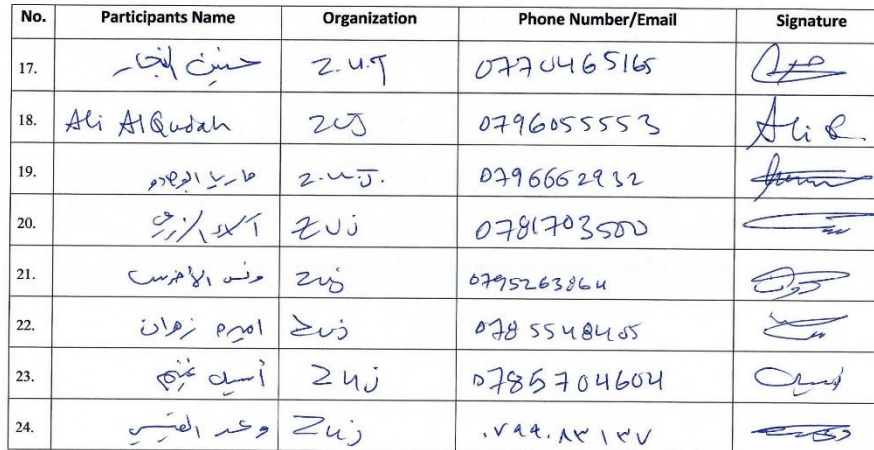 No. Participants Name Organization Phone Number/Email Signature
17. حنين النجار Z.U.J 0770465165
18. Ali AlQudah ZUJ 0796055553 Ali Q.
19. ماريا Z.U.J. 0796662932
20. آلاء ZUJ 0781703500
21. ونس الأخرس ZUJ 0795263864
22. اميره زهران ZUJ 0785548405
23. أسيل غنيم ZUJ 0785704604 أسيل
24. وعد القيسي ZUJ ٠٧٩٩٠٨٣١٣٧